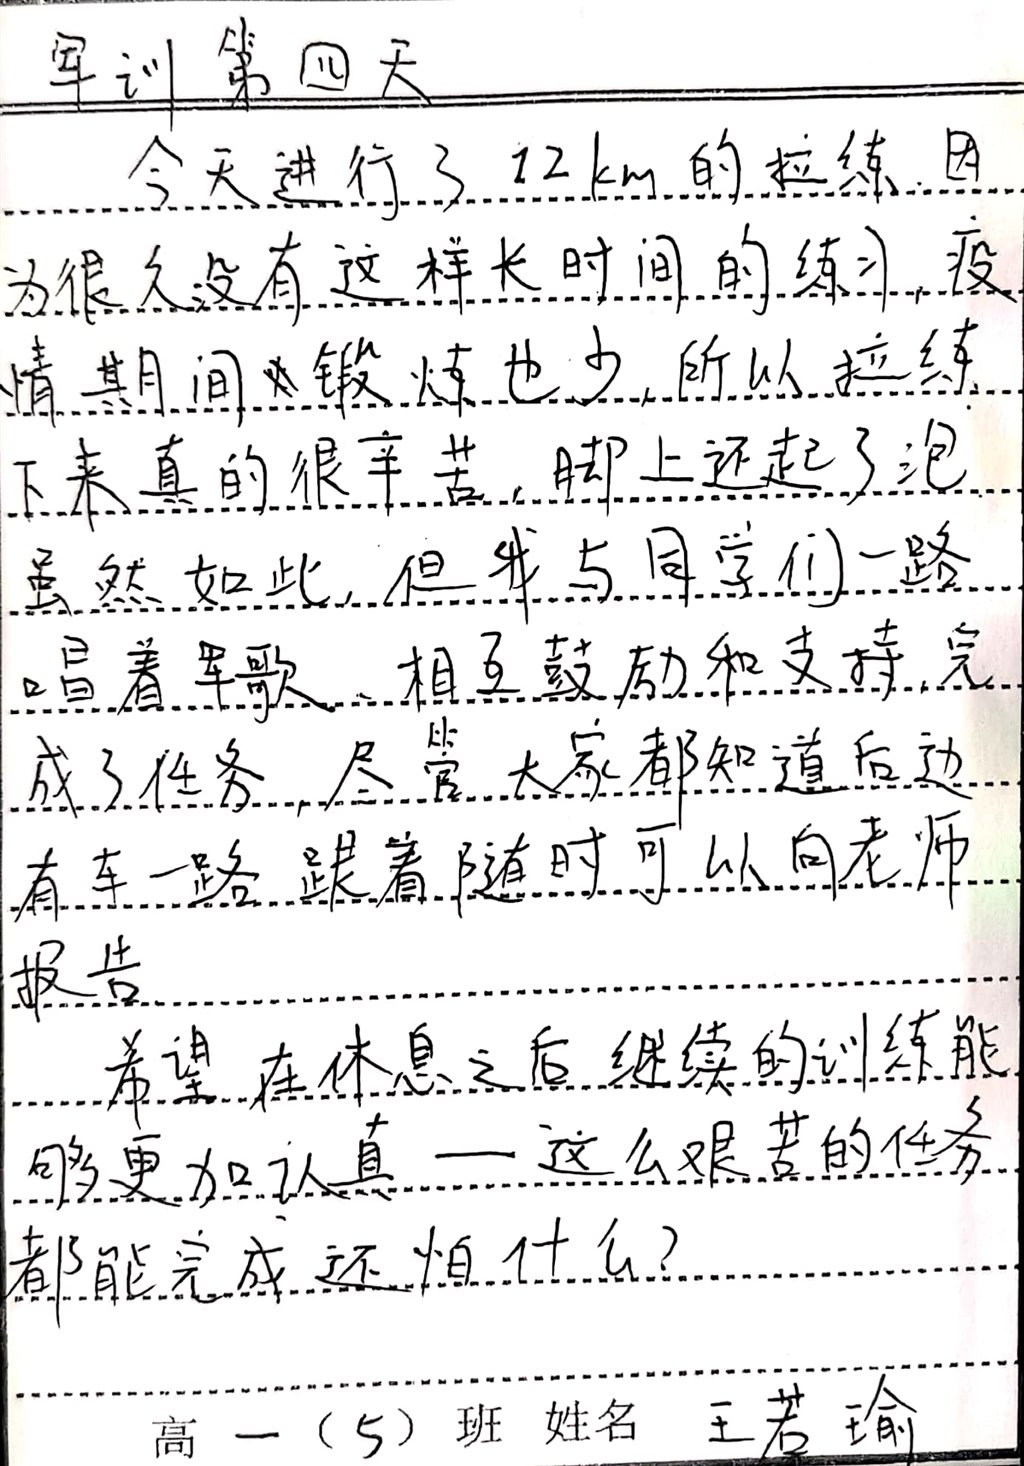 军训第四天
今天进行了12km的拉练.因
为很久没有这样长时间的练习,疫
情期间锻炼也少,所以拉练
下来真的很辛苦,脚上还起了泡
虽然如此,但我与同学们一路
唱着军歌、相互鼓励和支持,完
成了任务,尽管大家都知道后边
有车一路跟着随时可以向老师
报告
希望在休息之后继续的训练能
够更加认真一这么艰苦的任务
都能完成还怕什么?
高一(5)班 姓名 王若瑜